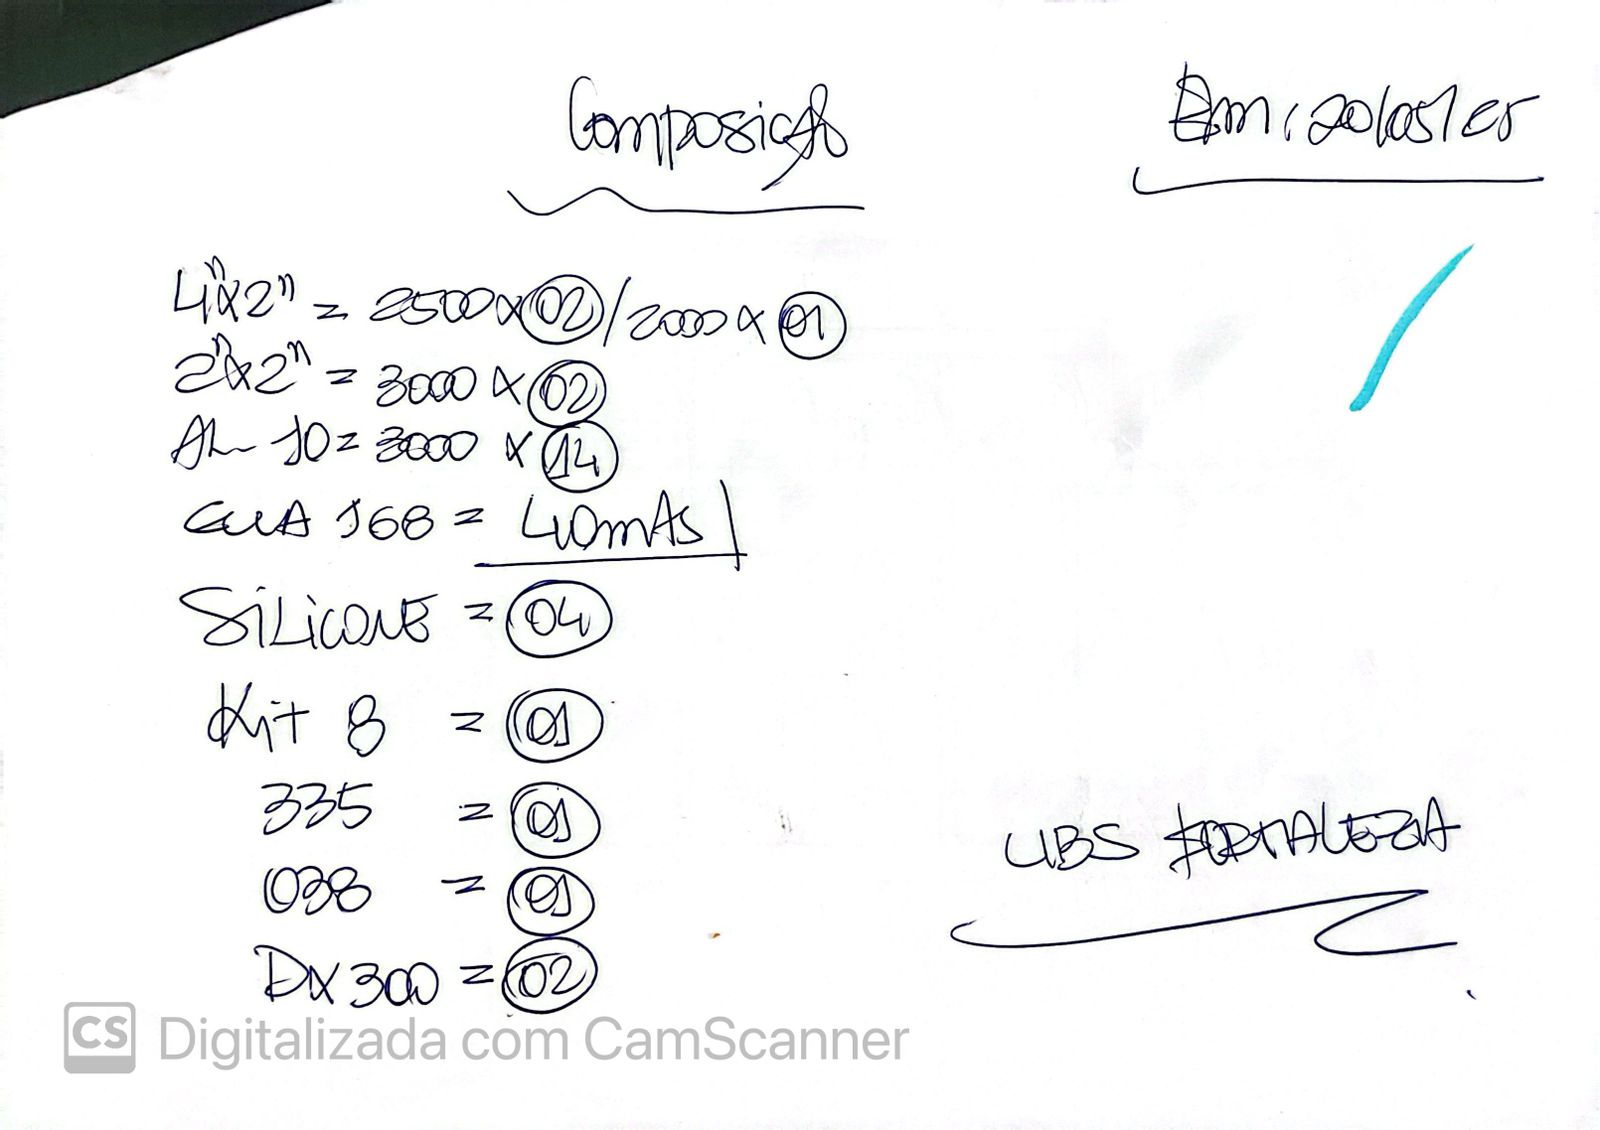 Composição
Em: 20/05/25
4"x2" = 2500 x 02 / 2000 x 01
2"x2" = 3000 x 02
AL 10 = 3000 x 14
168 = 40mAs
SiLiCONE = 04
Kit 8 = 01
335 = 01
038 = 01
DX 300 = 02
UBS FORTALEZA
CS Digitalizada com CamScanner